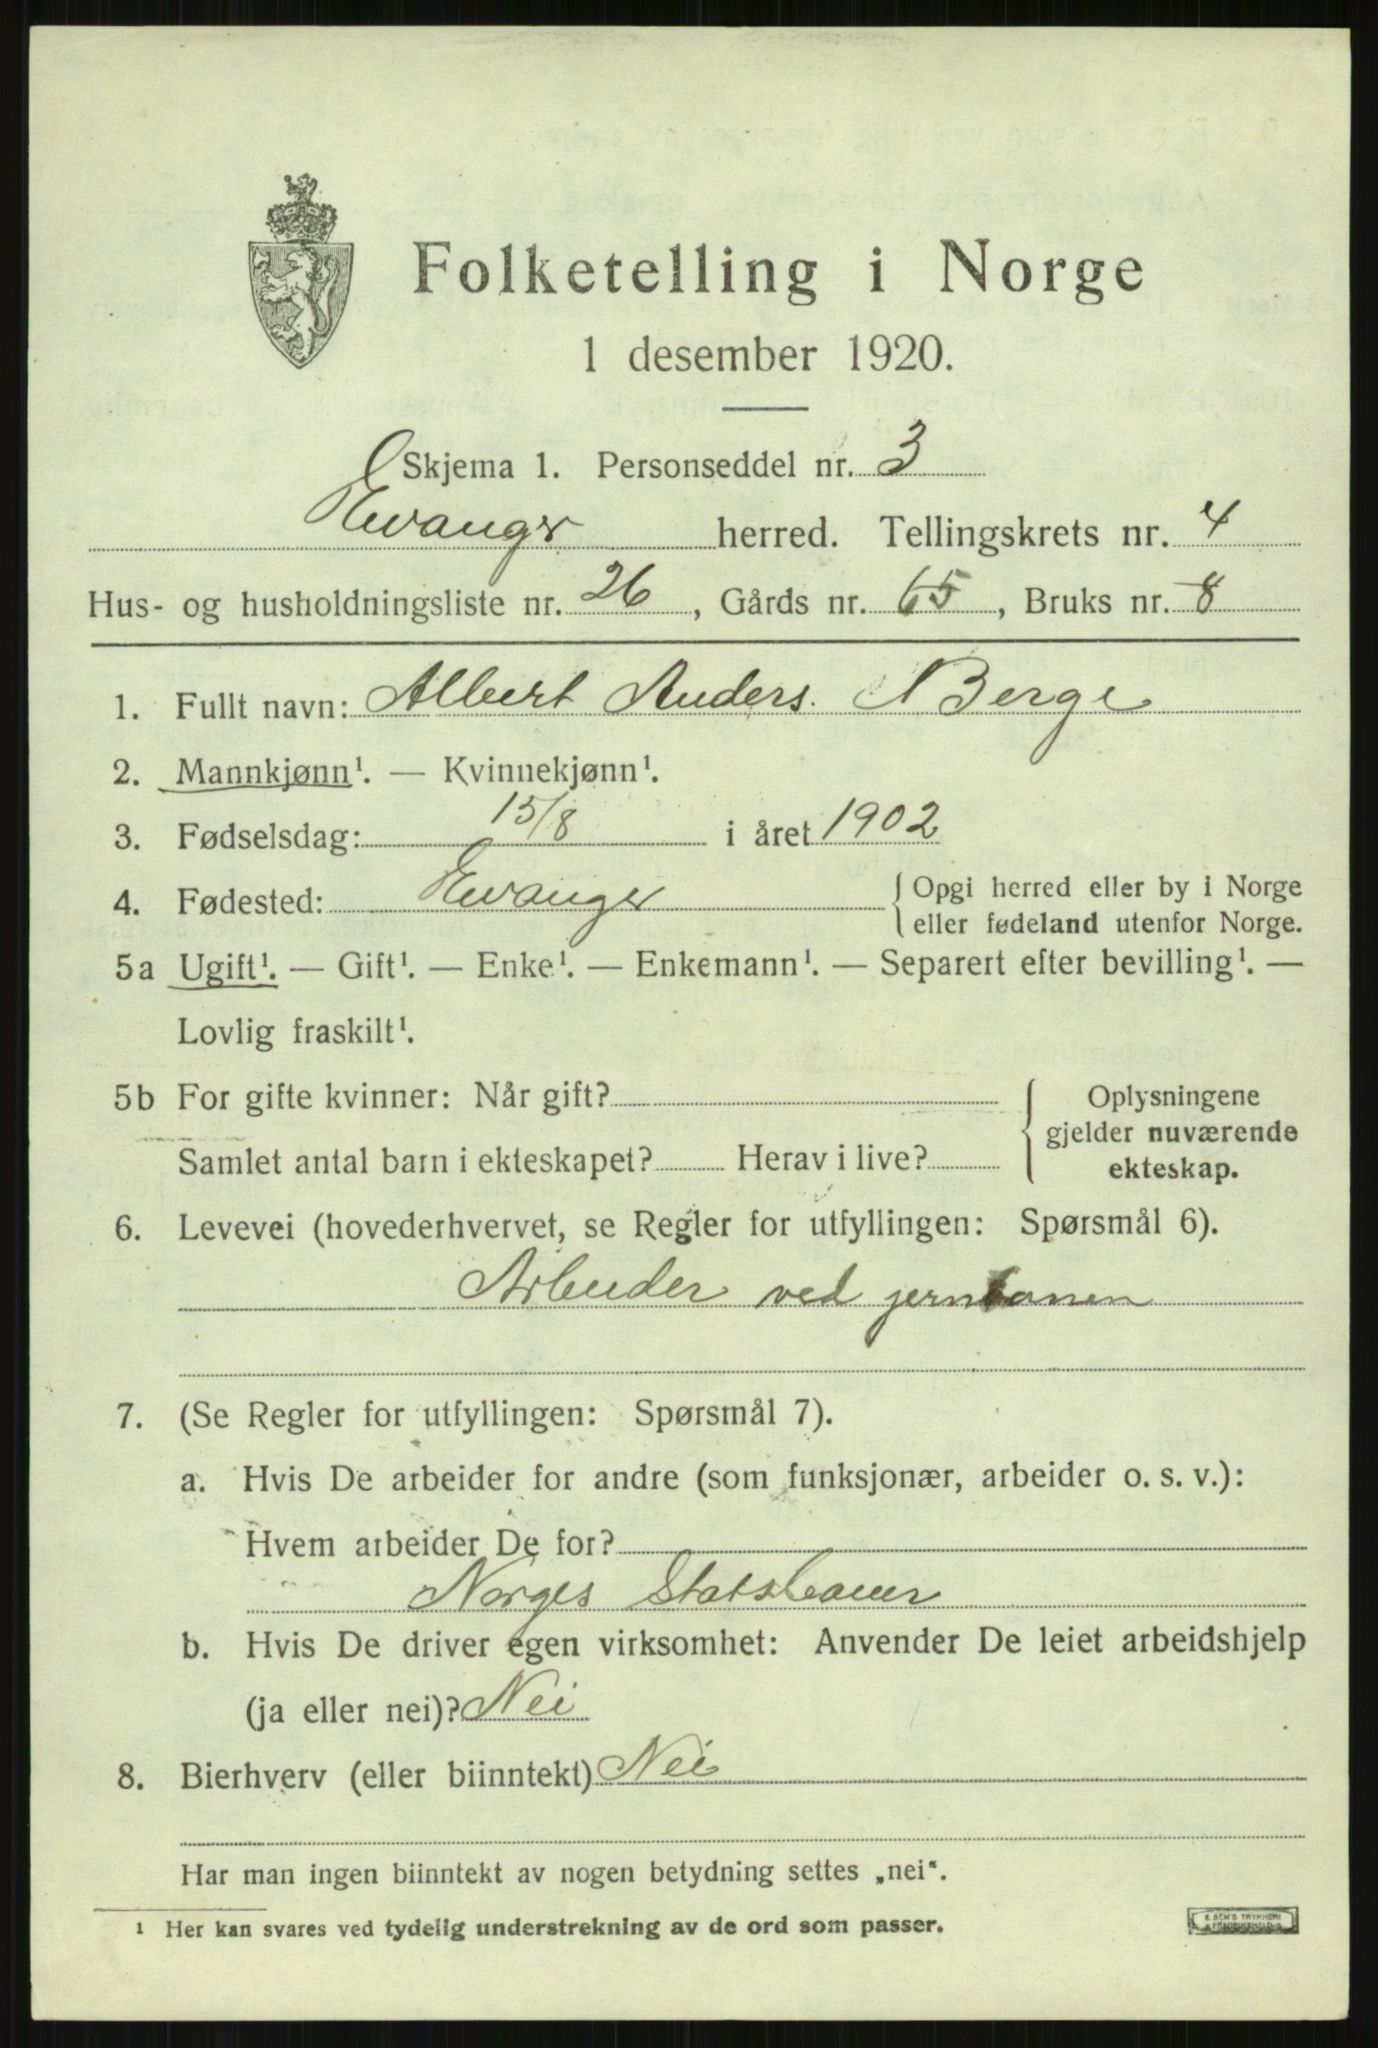 Folketelling i Norge
1 desember 1920.
Skjema 1. Personseddel nr. 3
Evanger herred. Tellingskrets nr. 4
Hus- og husholdningsliste nr. 26, Gårds nr. 65, Bruks nr. 8
1. Fullt navn: Albert Anders. N Berge
2. Mannkjønn¹. — Kvinnekjønn¹.
3. Fødselsdag: 15/8 i året 1902
4. Fødested: Evanger { Opgi herred eller by i Norge
eller fødeland utenfor Norge.
5a Ugift¹. — Gift¹. — Enke¹. — Enkemann¹. — Separert efter bevilling¹. —
Lovlig fraskilt¹.
5b For gifte kvinner: Når gift? { Oplysningene
gjelder nuværende
Samlet antal barn i ekteskapet? Herav i live? ekteskap.
6. Levevei (hovederhvervet, se Regler for utfyllingen: Spørsmål 6).
Arbeider ved jernbanen
7. (Se Regler for utfyllingen: Spørsmål 7).
a. Hvis De arbeider for andre (som funksjonær, arbeider o. s. v.):
Hvem arbeider De for?
Norges Statsbaner
b. Hvis De driver egen virksomhet: Anvender De leiet arbeidshjelp
(ja eller nei)? Nei
8. Bierhverv (eller biinntekt) Nei
Har man ingen biinntekt av nogen betydning settes „nei“.
¹ Her kan svares ved tydelig understrekning av de ord som passer.